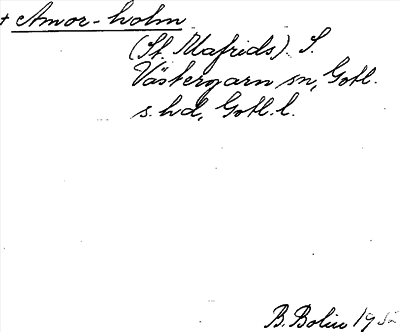 + Amor-holm
(St. Mafrids). S.
Västergarn sn, Gotl.
s. hd, Gotl. l.
B. Bolin 19